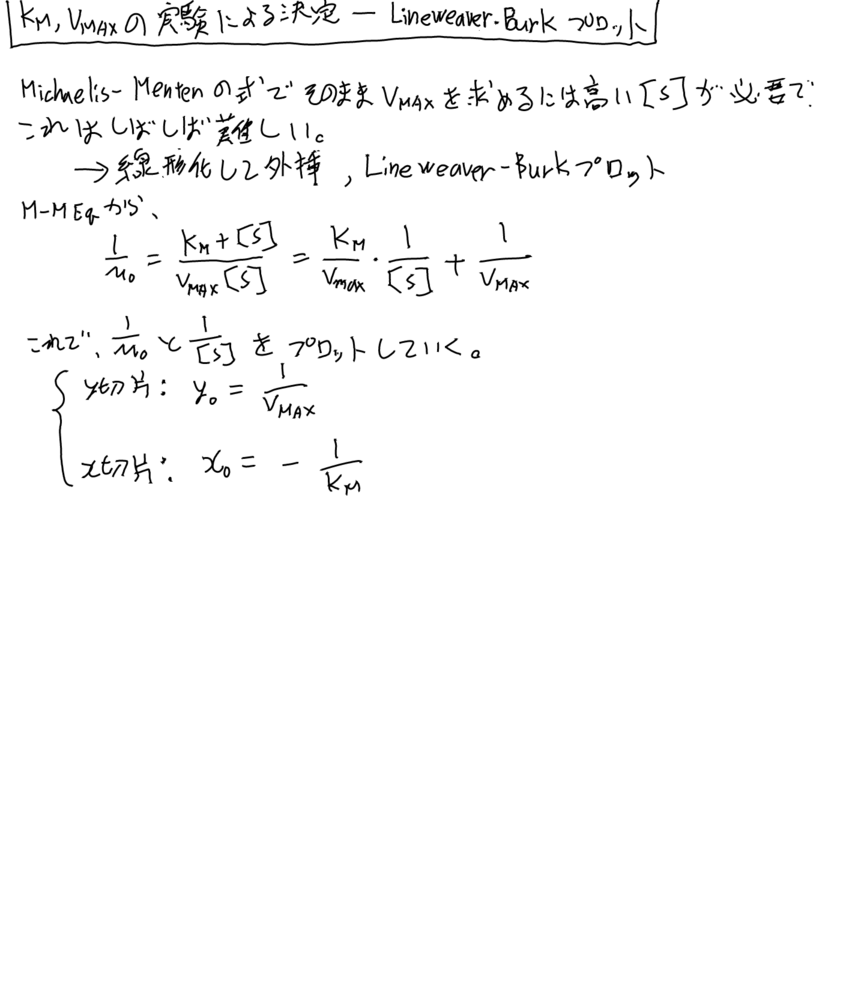 KM, VMAXの実験による決定 — Lineweaver-Burk プロット
Michaelis-Menten の式で そのまま VMAX を求めるには高い [S] が必要で
これはしばしば難しい。
→ 線形化して外挿, Lineweaver-Burkプロット
M-M Eq から、
1/u₀ = (KM + [S])/(VMAX [S]) = KM/Vmax · 1/[S] + 1/VMAX
これで、1/u₀ と 1/[S] を プロットしていく。
y切片: y₀ = 1/VMAX
x切片: x₀ = - 1/KM